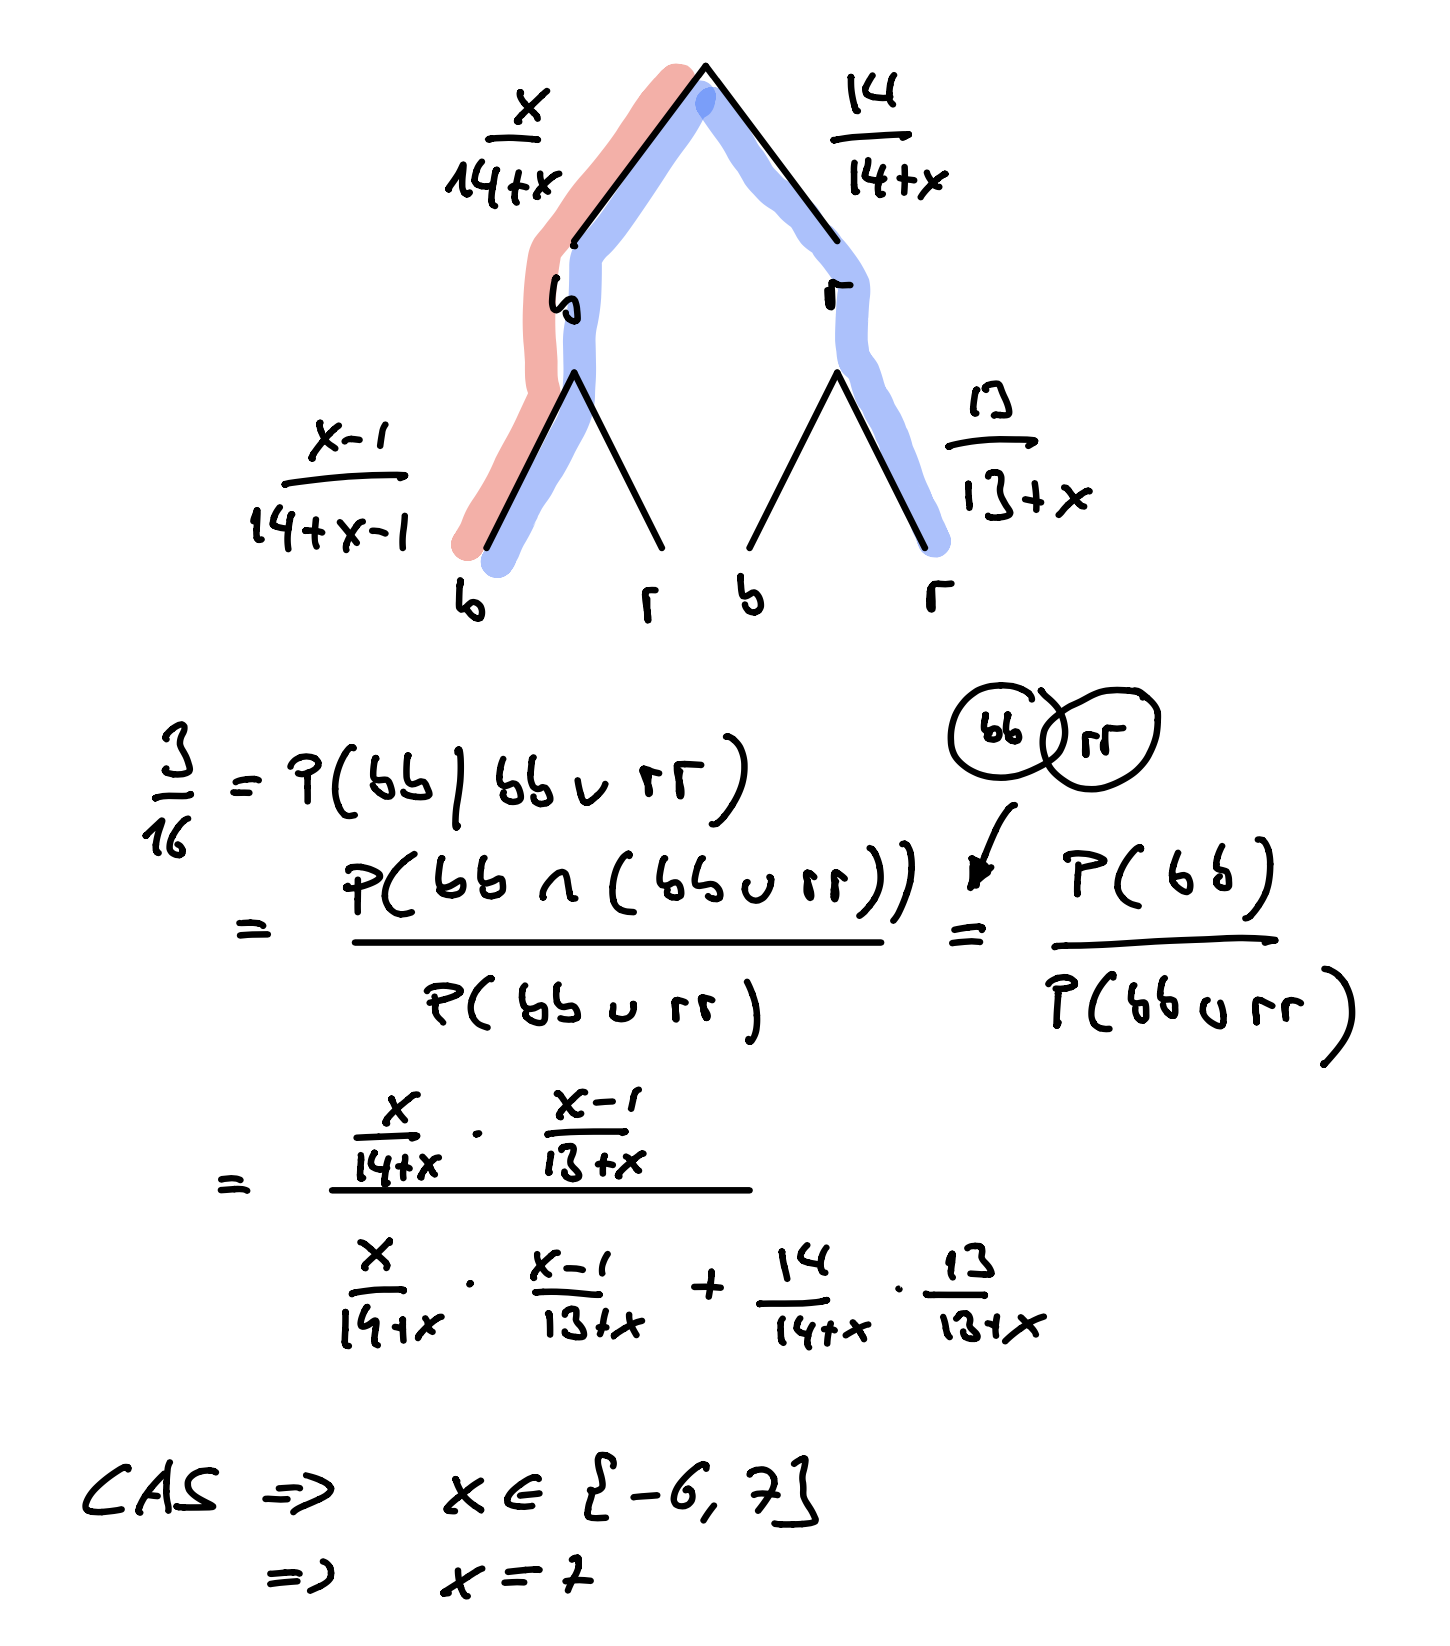 x/(14+x) 14/(14+x)
b r
(x-1)/(14+x-1) 13/(13+x)
b r b r
bb rr
3/16 = P(bb | bb ∪ rr)
= P(bb ∩ (bb ∪ rr)) / P(bb ∪ rr) = P(bb) / P(bb ∪ rr)
= (x/(14+x) · (x-1)/(13+x)) / (x/(14+x) · (x-1)/(13+x) + 14/(14+x) · 13/(13+x))
CAS ⇒ x ∈ {-6, 7}
⇒ x = 7